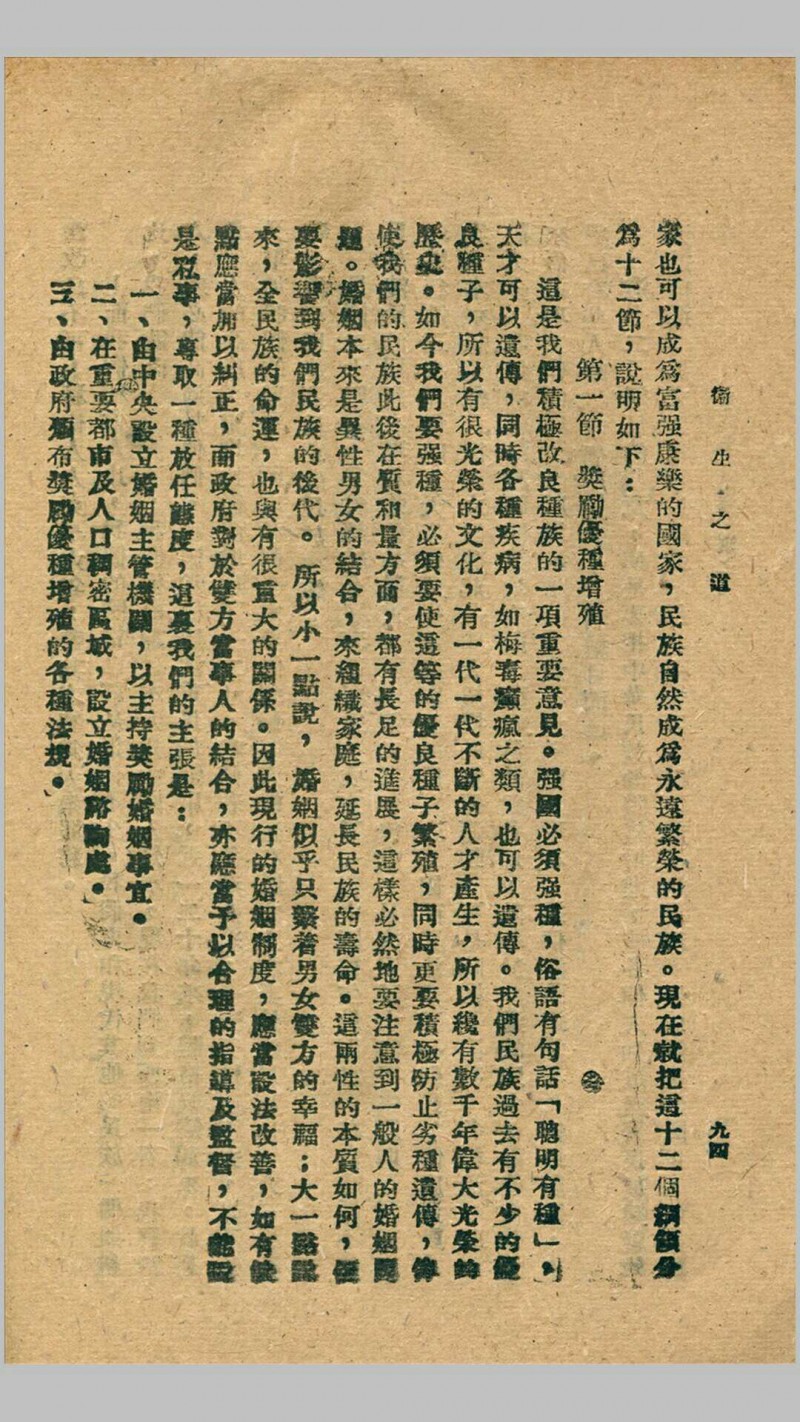 衛生之道
九四
家也可以成爲富强康樂的國家，民族自然成爲永遠繁榮的民族。現在就把這十二個綱領分
爲十二節，說明如下：
第一節　獎勵優種增殖
這是我們積極改良種族的一項重要意見。强國必須强種，俗語有句話「聰明有種」，
天才可以遺傳，同時各種疾病，如梅毒癲瘋之類，也可以遺傳。我們民族過去有不少的優
良種子，所以有很光榮的文化，有一代一代不斷的人才產生，所以纔有數千年偉大光榮的
歷史。如今我們要强種，必須要使這等的優良種子繁殖，同時更要積極防止劣種遺傳，俾
使我們的民族此後在質和量方面，都有長足的進展，這樣必然地要注意到一般人的婚姻問
題。婚姻本來是異性男女的結合，來組織家庭，延長民族的壽命。這兩性的本質如何，便
要影響到我們民族的後代。所以小一點說，婚姻似乎只繫着男女雙方的幸福；大一點說
來，全民族的命運，也與有很重大的關係。因此現行的婚姻制度，應當設法改善，如有缺
點應當加以糾正，而政府對於雙方當事人的結合，亦應當予以合理的指導及監督，不能說
是私事，專取一種放任態度，這裏我們的主張是：
一、由中央設立婚姻主管機關，以主持獎勵婚姻事宜。
二、在重要都市及人口稠密區域，設立婚姻諮詢處。
三、由政府頒布獎勵優種增殖的各種法規。